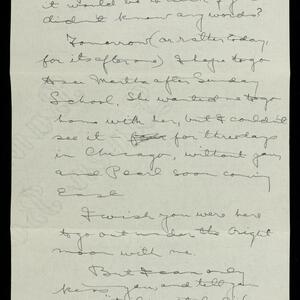 it would
didn't know any words?
Tomorrow (or rather today,
for it's after one) I hope to go
to see Martha after Sunday
School. She wanted me to go
home with her, but I couldn't
see it — for three days
in Chicago, without you
and Pearl soon coming
East
I wish you were here
to go out under the bright
moon with me.
But I can only
kiss you and tell you